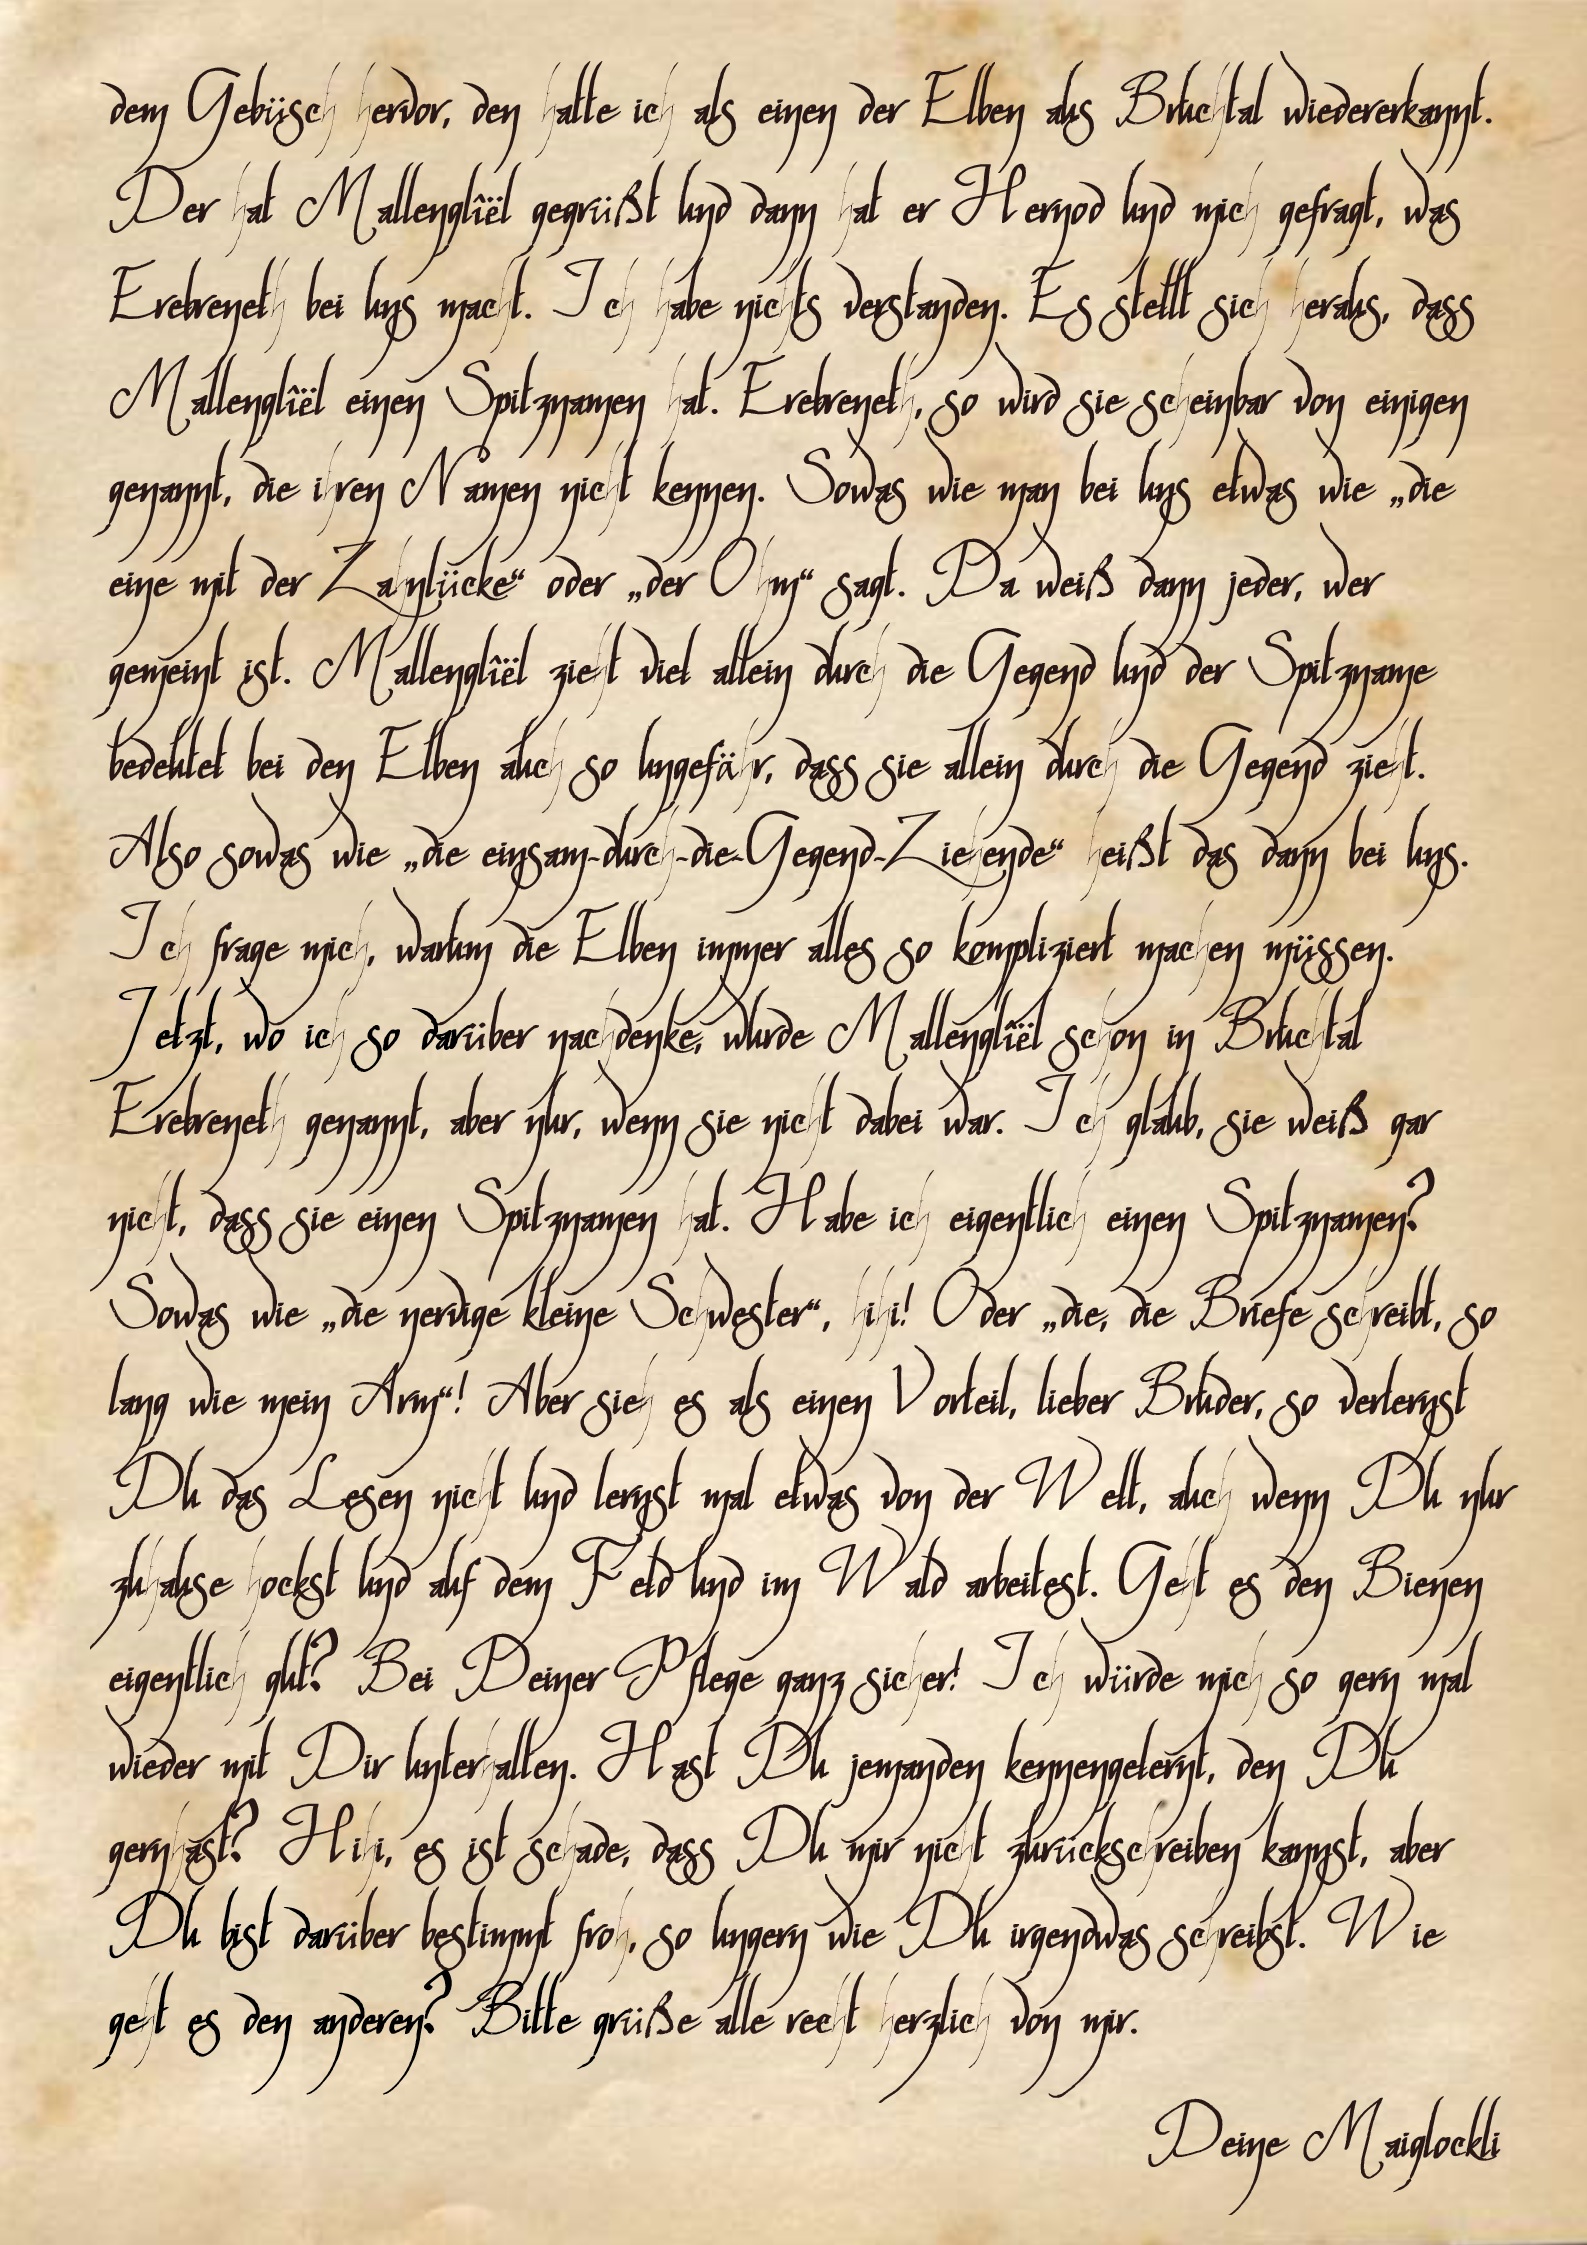 dem Gebüsch hervor, den hatte ich als einen der Elben aus Bruchtal wiedererkannt.
Der hat Mallenglîël gegrüßt und dann hat er Hernod und mich gefragt, was
Erebreneth bei uns macht. Ich habe nichts verstanden. Es stellt sich heraus, dass
Mallenglîël einen Spitznamen hat. Erebreneth, so wird sie scheinbar von einigen
genannt, die ihren Namen nicht kennen. Sowas wie man bei uns etwas wie „die
eine mit der Zahnlücke“ oder „der Ohm“ sagt. Da weiß dann jeder, wer
gemeint ist. Mallenglîël zieht viel allein durch die Gegend und der Spitzname
bedeutet bei den Elben auch so ungefähr, dass sie allein durch die Gegend zieht.
Also sowas wie „die einsam-durch-die-Gegend-Ziehende“ heißt das dann bei uns.
Ich frage mich, warum die Elben immer alles so kompliziert machen müssen.
Jetzt, wo ich so darüber nachdenke, wurde Mallenglîël schon in Bruchtal
Erebreneth genannt, aber nur, wenn sie nicht dabei war. Ich glaub, sie weiß gar
nicht, dass sie einen Spitznamen hat. Habe ich eigentlich einen Spitznamen?
Sowas wie „die nervige kleine Schwester“, hihi! Oder „die, die Briefe schreibt, so
lang wie mein Arm“! Aber sieh es als einen Vorteil, lieber Bruder, so verlernst
Du das Lesen nicht und lernst mal etwas von der Welt, auch wenn Du nur
zuhause hockst und auf dem Feld und im Wald arbeitest. Geht es den Bienen
eigentlich gut? Bei Deiner Pflege ganz sicher! Ich würde mich so gern mal
wieder mit Dir unterhalten. Hast Du jemanden kennengelernt, den Du
gernhast? Hihi, es ist schade, dass Du mir nicht zurückschreiben kannst, aber
Du bist darüber bestimmt froh, so ungern wie Du irgendwas schreibst. Wie
geht es den anderen? Bitte grüße alle recht herzlich von mir.
Deine Maiglockli